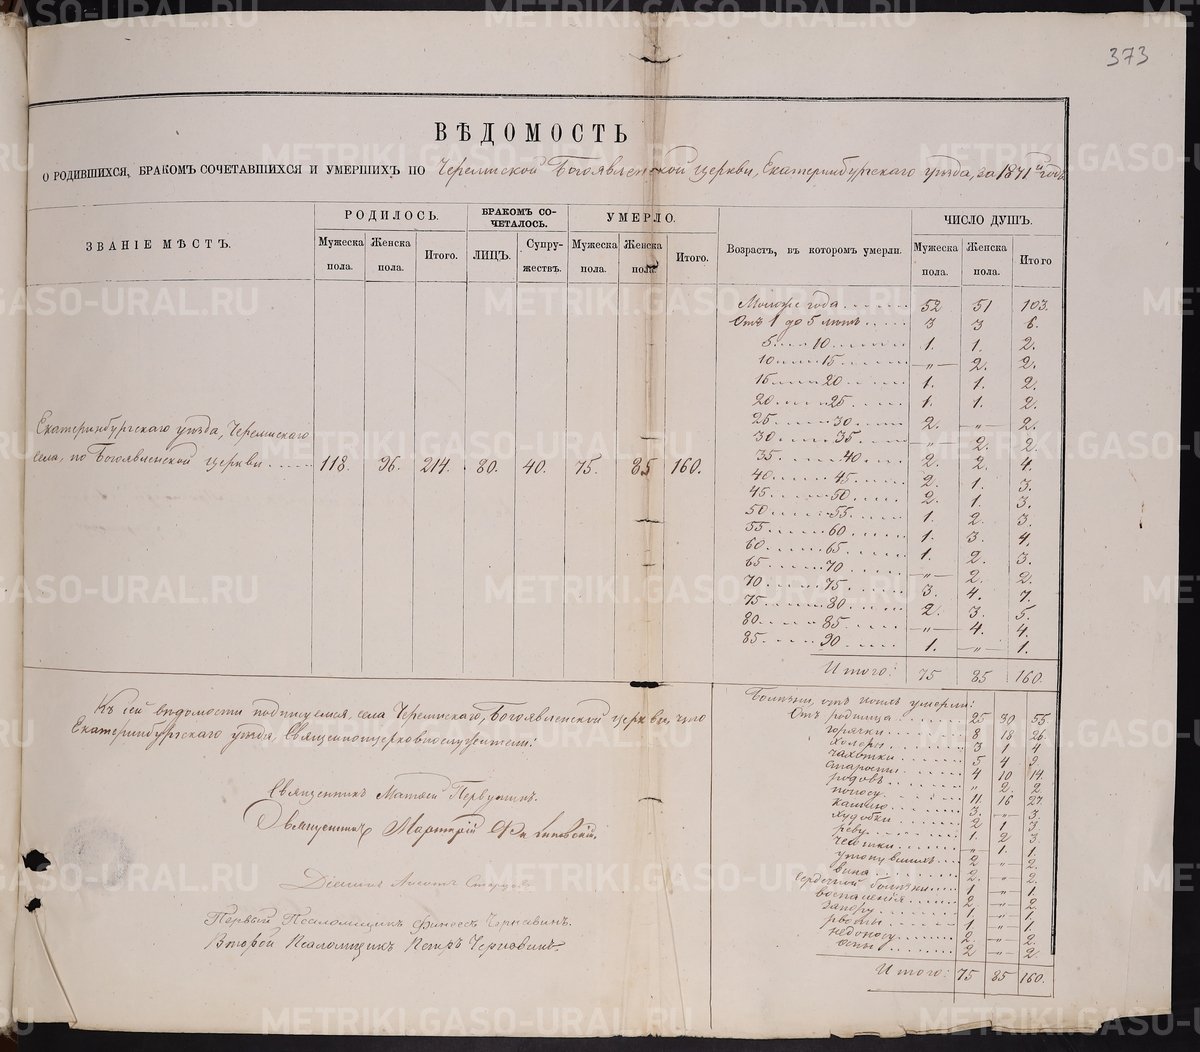 373
ВѢДОМОСТЬ
О РОДИВШИХСЯ, БРАКОМЪ СОЧЕТАВШИХСЯ И УМЕРШИХЪ ПО Черемиской Богоявленской церкви, Екатеринбургскаго уѣзда, за 1871й годъ
ЗВАНІЕ МѢСТЪ.
РОДИЛОСЬ.
Мужеска пола.
Женска пола.
Итого.
БРАКОМЪ СОЧЕТАЛОСЬ.
ЛИЦЪ.
Супружествъ.
УМЕРЛО.
Мужеска пола.
Женска пола.
Итого.
Возрастъ, въ которомъ умерли.
ЧИСЛО ДУШЪ.
Мужеска пола.
Женска пола.
Итого
Екатеринбургскаго уѣзда, Черемискаго
села, по Богоявленской церкви 118. 96. 214. 80. 40. 75. 85 160.
Моложе года 52 51 103.
Отъ 1 до 5 лѣтъ 3 3 6.
5 10 1. 1. 2.
10 15 „ 2. 2.
15 20 1. 1. 2.
20 25 1. 1. 2.
25 30 2. „ 2.
30 35 „ 2. 2.
35 40 2. 2. 4.
40 45 2. 1. 3.
45 50 2. 1. 3.
50 55 1. 2. 3.
55 60 1. 3. 4.
60 65 1. 2. 3.
65 70 „ 2. 2.
70 75 3. 4. 7.
75 80 2. 3. 5.
80 85 „ 4. 4.
85 90 1. „ 1.
Итого: 75 85 160.
Къ сей вѣдомости подпишемся, села Черемискаго, Богоявленской церкви, что
Екатеринбургскаго уѣзда, Священноцерковнослужители:
Священникъ Матѳей Первушинъ.
Священникъ Мартирій
Діаконъ
Первый Псаломщикъ Финеесъ Чернавинъ.
Второй Псаломщикъ Петръ Чернавинъ.
Болѣзни, отъ коихъ умерли:
Отъ родимца 25 30 55
горячки 8 18 26
холеры 3 1 4
чахотки 5 4 9.
старости 4 10 14.
родовъ „ 2. 2
поносу 11. 16 27.
кашлю 3. „ 3.
худобки 2 1 3.
реву 1. 2 3.
чесотки „ 1. 1.
утонувшихъ 2 „ 2.
вина 2 „ 2.
сердечной болѣзни 1 „ 1.
воспаленія 2 „ 2.
запору 1 „ 1.
рвоты 1 „ 1.
недоносу 2. „ 2.
оспы 2 „ 2
Итого: 75 85 160.
METRIKI.GASO-URAL.RU